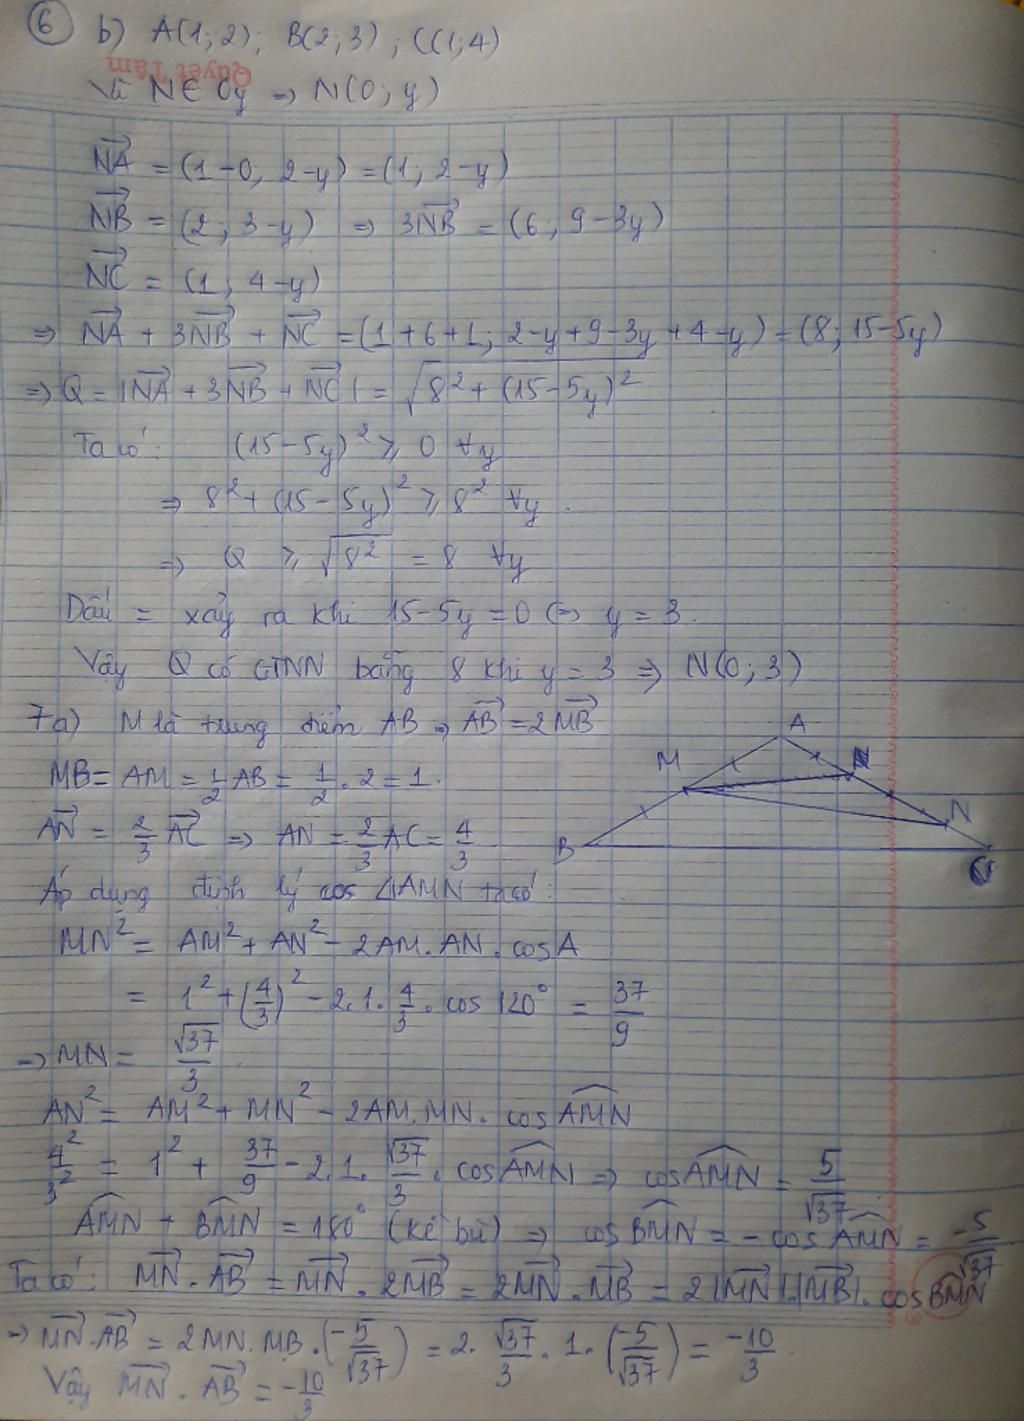 ⑥ b) A(1;2); B(2;3); C(1;4)
Quyết Tâm
Vì N∈Oy → N(0; y)
$\overrightarrow{NA}$ = (1-0; 2-y) = (1; 2-y)
$\overrightarrow{NB}$ = (2; 3-y) ⇒ 3$\overrightarrow{NB}$ = (6; 9-3y)
$\overrightarrow{NC}$ = (1; 4-y)
⇒ $\overrightarrow{NA}$ + 3$\overrightarrow{NB}$ + $\overrightarrow{NC}$ = (1+6+1; 2-y+9-3y+4-y) = (8; 15-5y)
⇒ Q = |$\overrightarrow{NA}$ + 3$\overrightarrow{NB}$ + $\overrightarrow{NC}$| = $\sqrt{8^2+(15-5y)^2}$
Ta có: (15-5y)² ≥ 0 ∀y
⇒ 8² + (15-5y)² ≥ 8² ∀y.
⇒ Q ≥ $\sqrt{8^2}$ = 8 ∀y
Dấu = xảy ra khi 15-5y=0 ⇔ y = 3.
Vậy Q có GTNN bằng 8 khi y = 3 ⇒ N(0; 3)
7a) M là trung điểm AB → $\overrightarrow{AB}$ = 2$\overrightarrow{MB}$
MB = AM = $\frac{1}{2}$AB = $\frac{1}{2}$.2 = 1.
$\overrightarrow{AN}$ = $\frac{2}{3}$$\overrightarrow{AC}$ ⇒ AN = $\frac{2}{3}$AC = $\frac{4}{3}$
A
M
N
B
C
Áp dụng định lý cos △AMN ta có:
MN² = AM² + AN² - 2AM.AN.cosA
= 1² + ($\frac{4}{3}$)² - 2.1.$\frac{4}{3}$.cos 120° = $\frac{37}{9}$
→ MN = $\frac{\sqrt{37}}{3}$
AN² = AM² + MN² - 2AM.MN.cos$\widehat{AMN}$
$\frac{4^2}{3^2}$ = 1² + $\frac{37}{9}$ - 2.1.$\frac{\sqrt{37}}{3}$.cos$\widehat{AMN}$ ⇒ cos$\widehat{AMN}$ = $\frac{5}{\sqrt{37}}$
$\widehat{AMN}$ + $\widehat{BMN}$ = 180° (kề bù) ⇒ cos$\widehat{BMN}$ = -cos$\widehat{AMN}$ = $\frac{-5}{\sqrt{37}}$
Ta có: $\overrightarrow{MN}$.$\overrightarrow{AB}$ = $\overrightarrow{MN}$.2$\overrightarrow{MB}$ = 2$\overrightarrow{MN}$.$\overrightarrow{MB}$ = 2|$\overrightarrow{MN}$|.|$\overrightarrow{MB}$|.cos$\widehat{BMN}$
→ $\overrightarrow{MN}$.$\overrightarrow{AB}$ = 2MN.MB.($\frac{-5}{\sqrt{37}}$) = 2.$\frac{\sqrt{37}}{3}$.1.($\frac{-5}{\sqrt{37}}$) = $\frac{-10}{3}$
Vậy $\overrightarrow{MN}$.$\overrightarrow{AB}$ = $\frac{-10}{3}$